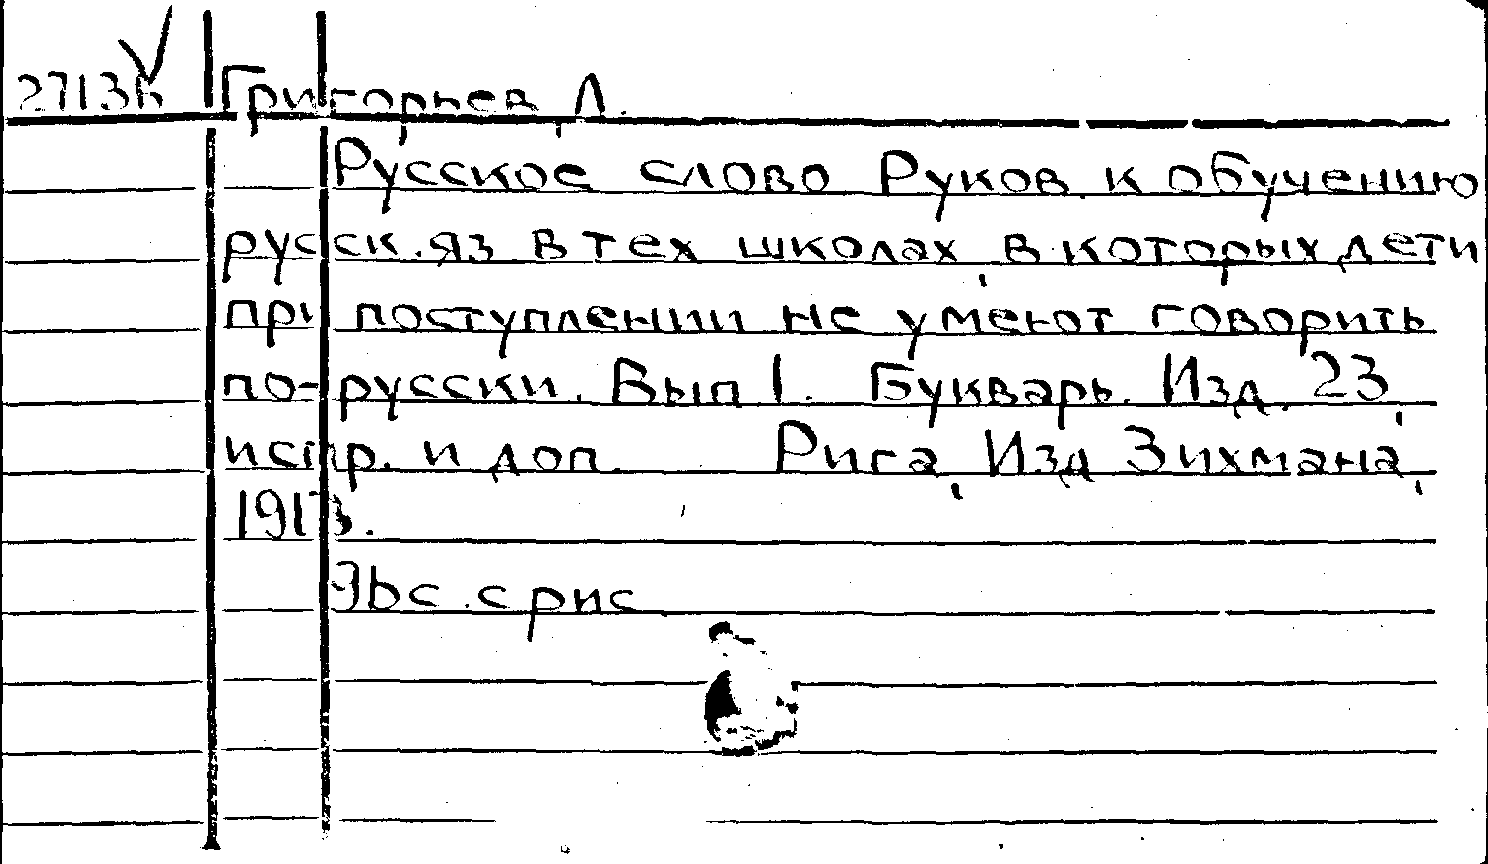 2713к Григорьев, Л.
Русское слово Руков. к обучению
русск. яз в тех школах, в которых дети
при поступлении не умеют говорить
по-русски. Вып 1. Букварь. Изд. 23,
испр. и доп. Рига, Изд Зихмана,
1913.
96с. с рис